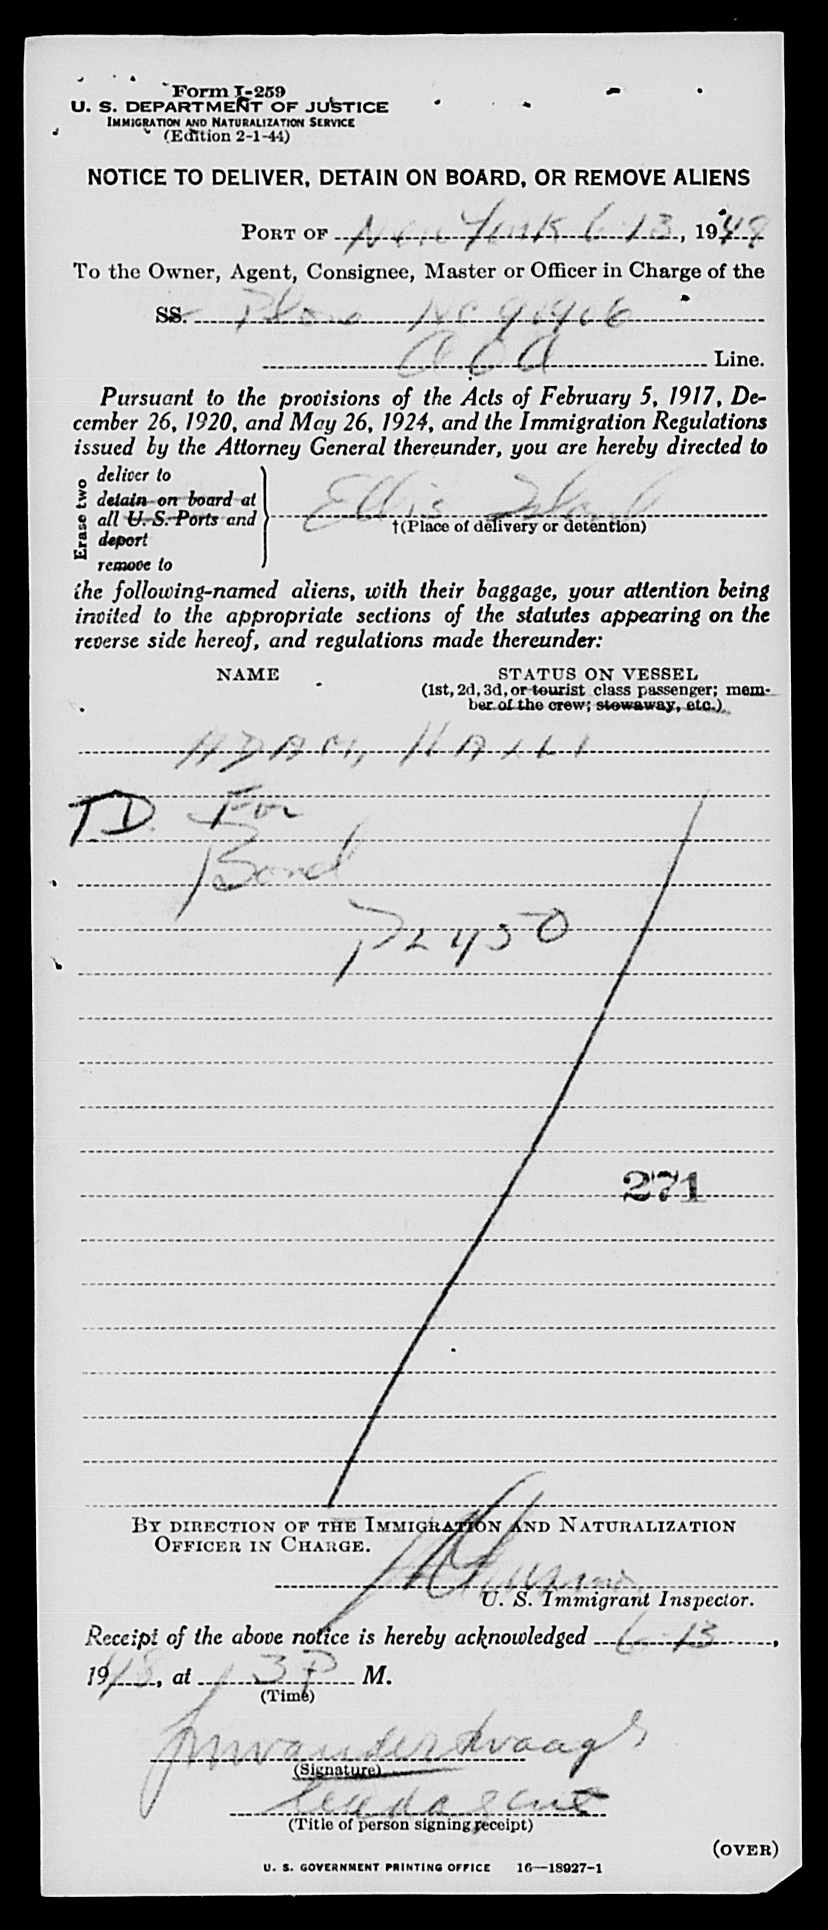 Form I-259
U. S. DEPARTMENT OF JUSTICE
IMMIGRATION AND NATURALIZATION SERVICE
(Edition 2-1-44)
NOTICE TO DELIVER, DETAIN ON BOARD, OR REMOVE ALIENS
PORT OF New York 6-13, 1948
To the Owner, Agent, Consignee, Master or Officer in Charge of the
SS. Plane NC 90906
AOA Line.
Pursuant to the provisions of the Acts of February 5, 1917, De-
cember 26, 1920, and May 26, 1924, and the Immigration Regulations
issued by the Attorney General thereunder, you are hereby directed to
Erase two
deliver to
detain on board at
all U. S. Ports and
deport
remove to
Ellis Island
†(Place of delivery or detention)
the following-named aliens, with their baggage, your attention being
invited to the appropriate sections of the statutes appearing on the
reverse side hereof, and regulations made thereunder:
NAME STATUS ON VESSEL
(1st, 2d, 3d, or tourist class passenger; mem-
ber of the crew; stowaway, etc.)
ADAM, KALLI
TD For
Bond
271
BY DIRECTION OF THE IMMIGRATION AND NATURALIZATION
OFFICER IN CHARGE.
U. S. Immigrant Inspector.
Receipt of the above notice is hereby acknowledged 6-13,
1948, at 13 P M.
(Time)
(Signature)
(Title of person signing receipt)
(OVER)
U. S. GOVERNMENT PRINTING OFFICE 16—18927-1